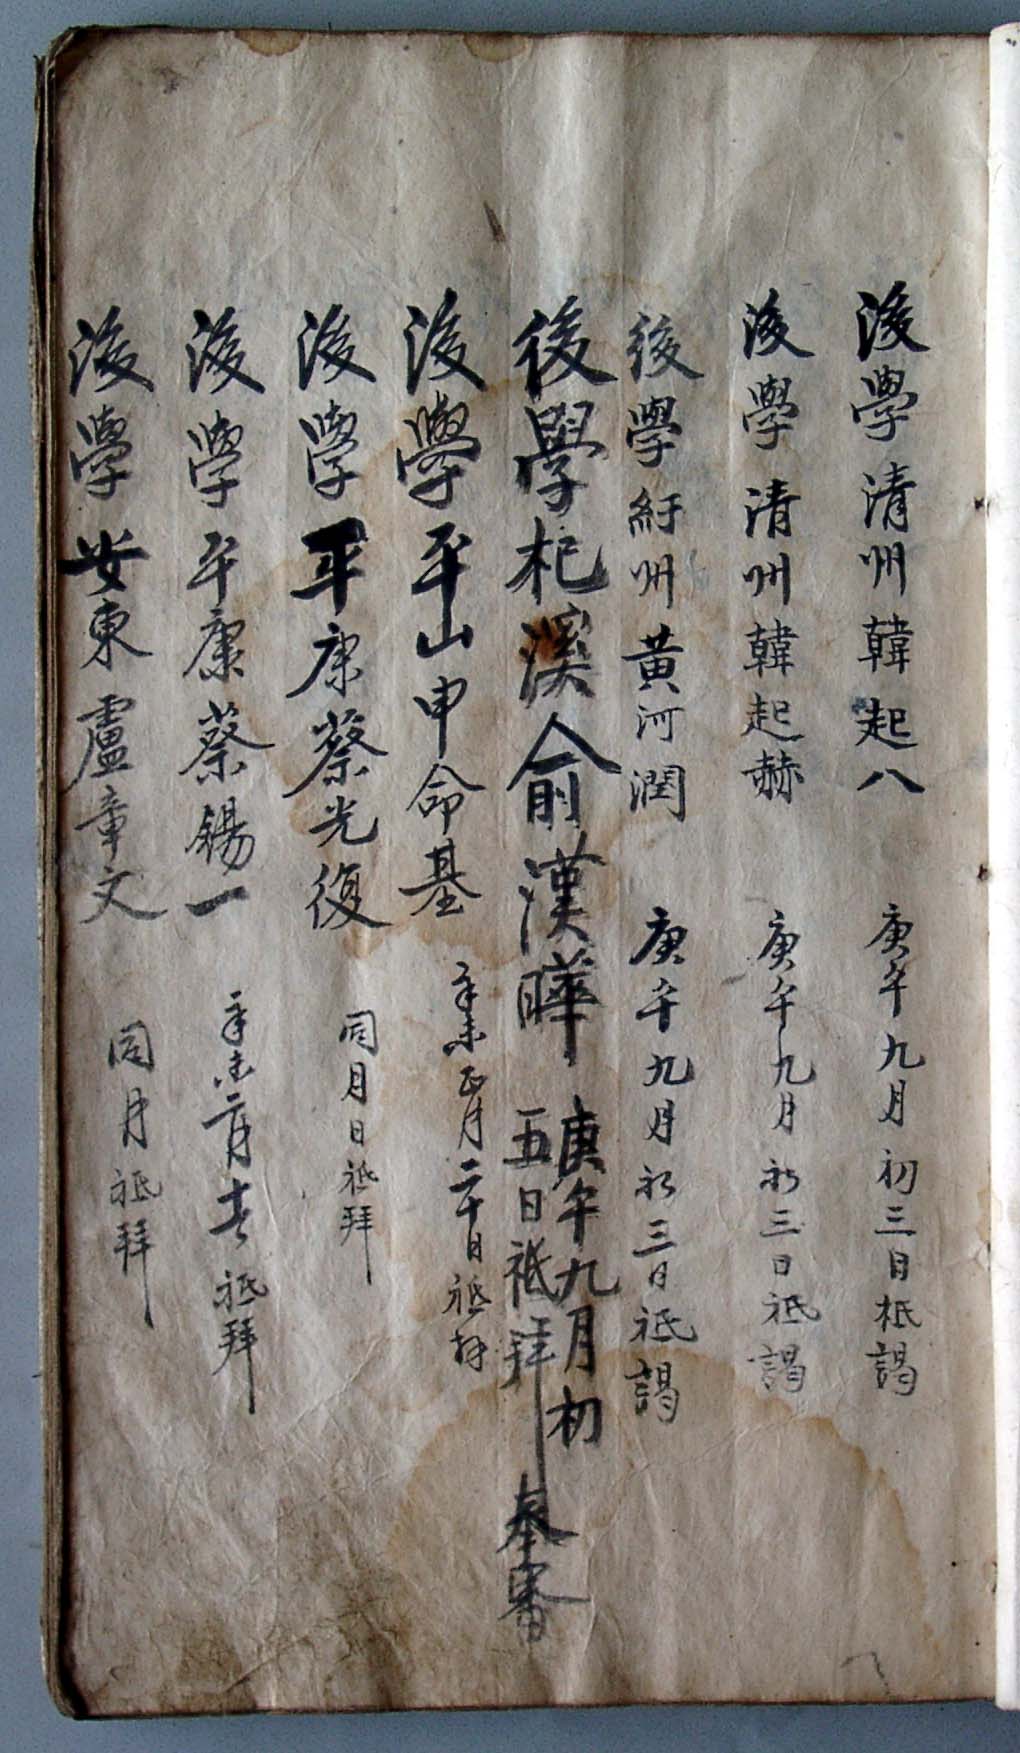 後學清州韓起八 庚午九月初三日祗謁
後學清州韓起赫 庚午九月初三日祗謁
後學紆州黃河潤 庚午九月初三日祗謁
後學杞溪俞漢曄 庚午九月初
五日祗拜 奉審
後學平山申命基 辛未正月二十日祗拜
後學平康蔡光復 同月日祗拜
後學平康蔡錫一 辛未二月 祗拜
後學安東盧章文 同月祗拜